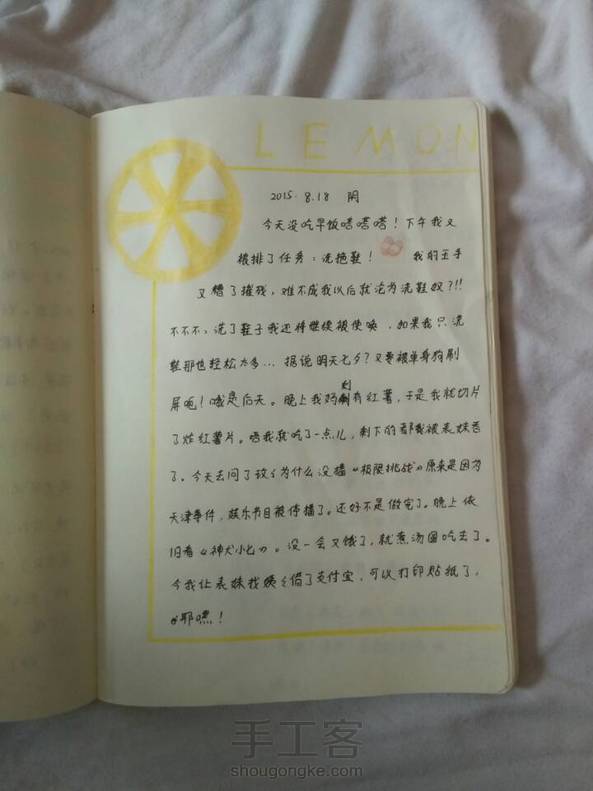 LEMON
2015.8.18 阴
今天没吃早饭嗒嗒嗒!下午我又
被排了任务:洗拖鞋! 我的玉手
又糟了摧残,难不成我以后就沦为洗鞋奴?!!
不不不,洗了鞋子我还得继续被使唤,如果我只洗
鞋那也轻松太多...据说明天七夕?又要被单身狗刷
屏啦!哦是后天。晚上我妈剩有红薯,于是我就切片
了炸红薯片。唔我就吃了一点儿,剩下的都我被表妹吞
了。今天去问了玟ミ为什么没播《极限挑战》原来是因为
天津事件,娱乐节目被停播了。还好不是做完了。晚上依
旧看《神犬小七》。没一会又饿了,就煮汤圆吃去了。
今我让表妹找姨ミ借了支付宝,可以打印贴纸了,
耶嘿!
手工客
shougongke.com